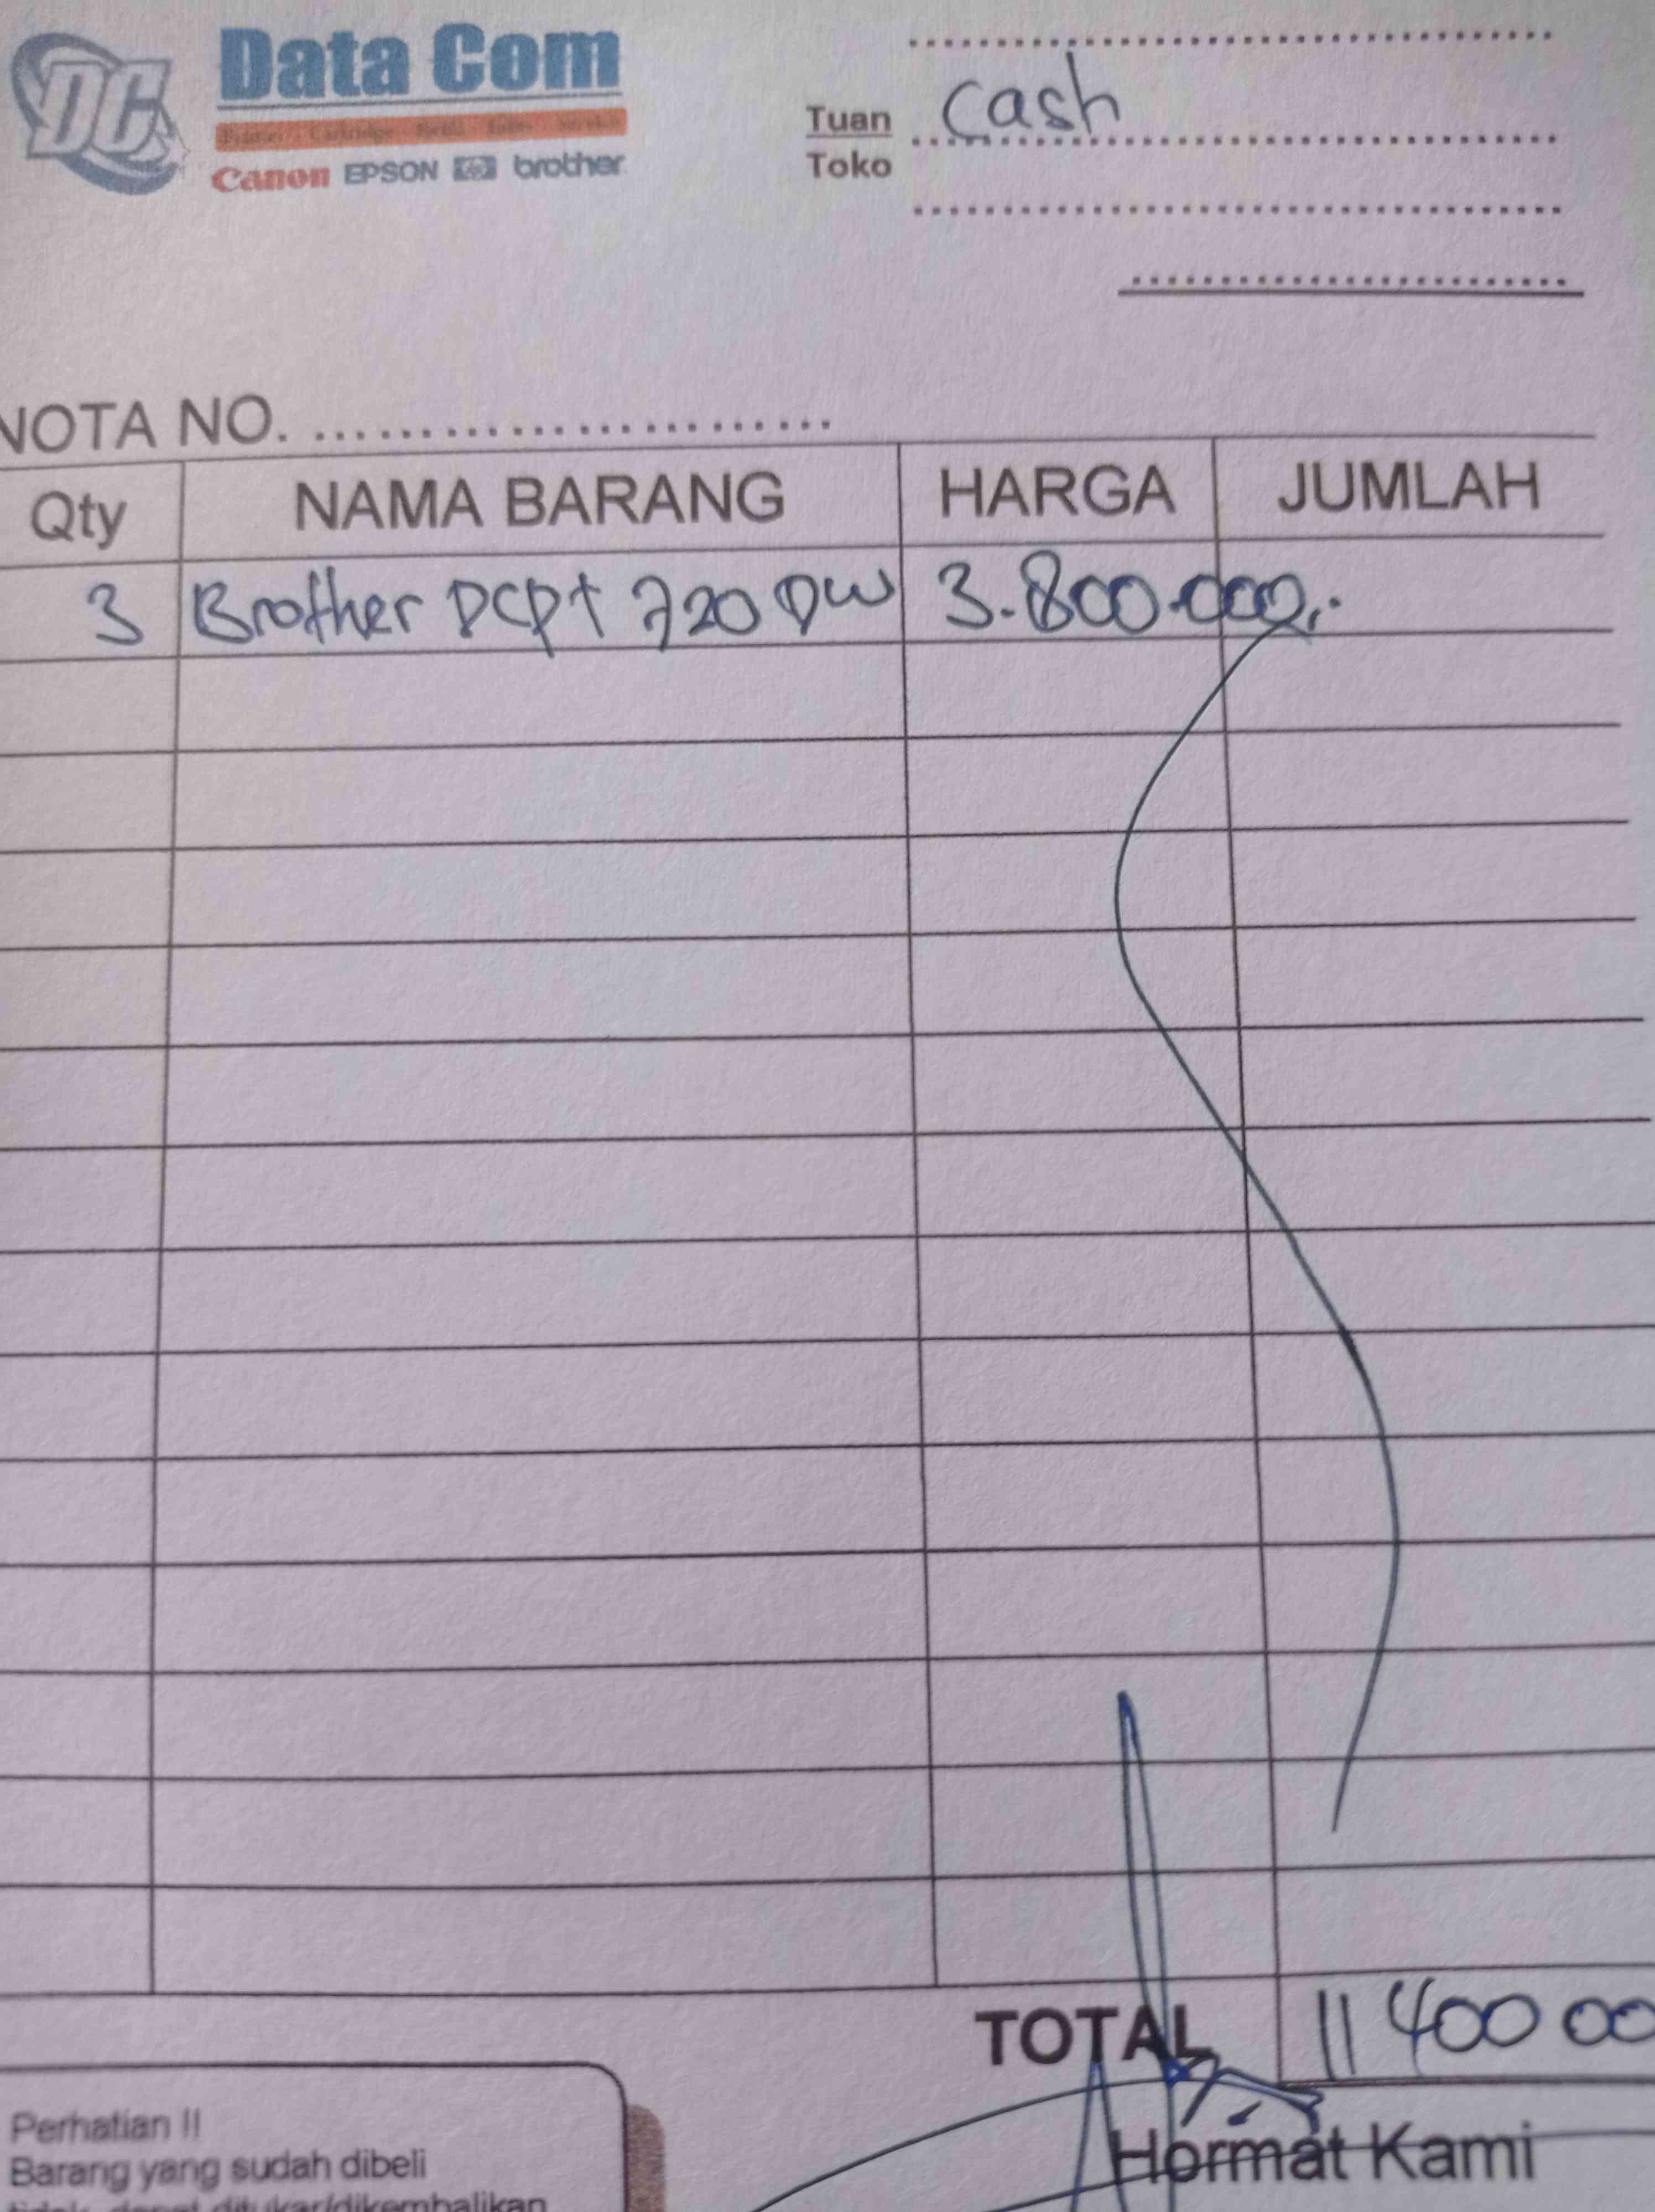 DC
Data Com
Canon EPSON hp brother
Tuan cash
Toko
NOTA NO. ........................
Qty NAMA BARANG HARGA JUMLAH
3 Brother DCPT 720 DW 3.800.000,-
TOTAL 11 400 00
Hormat Kami
Perhatian !!
Barang yang sudah dibeli
tidak dapat ditukar/dikembalikan